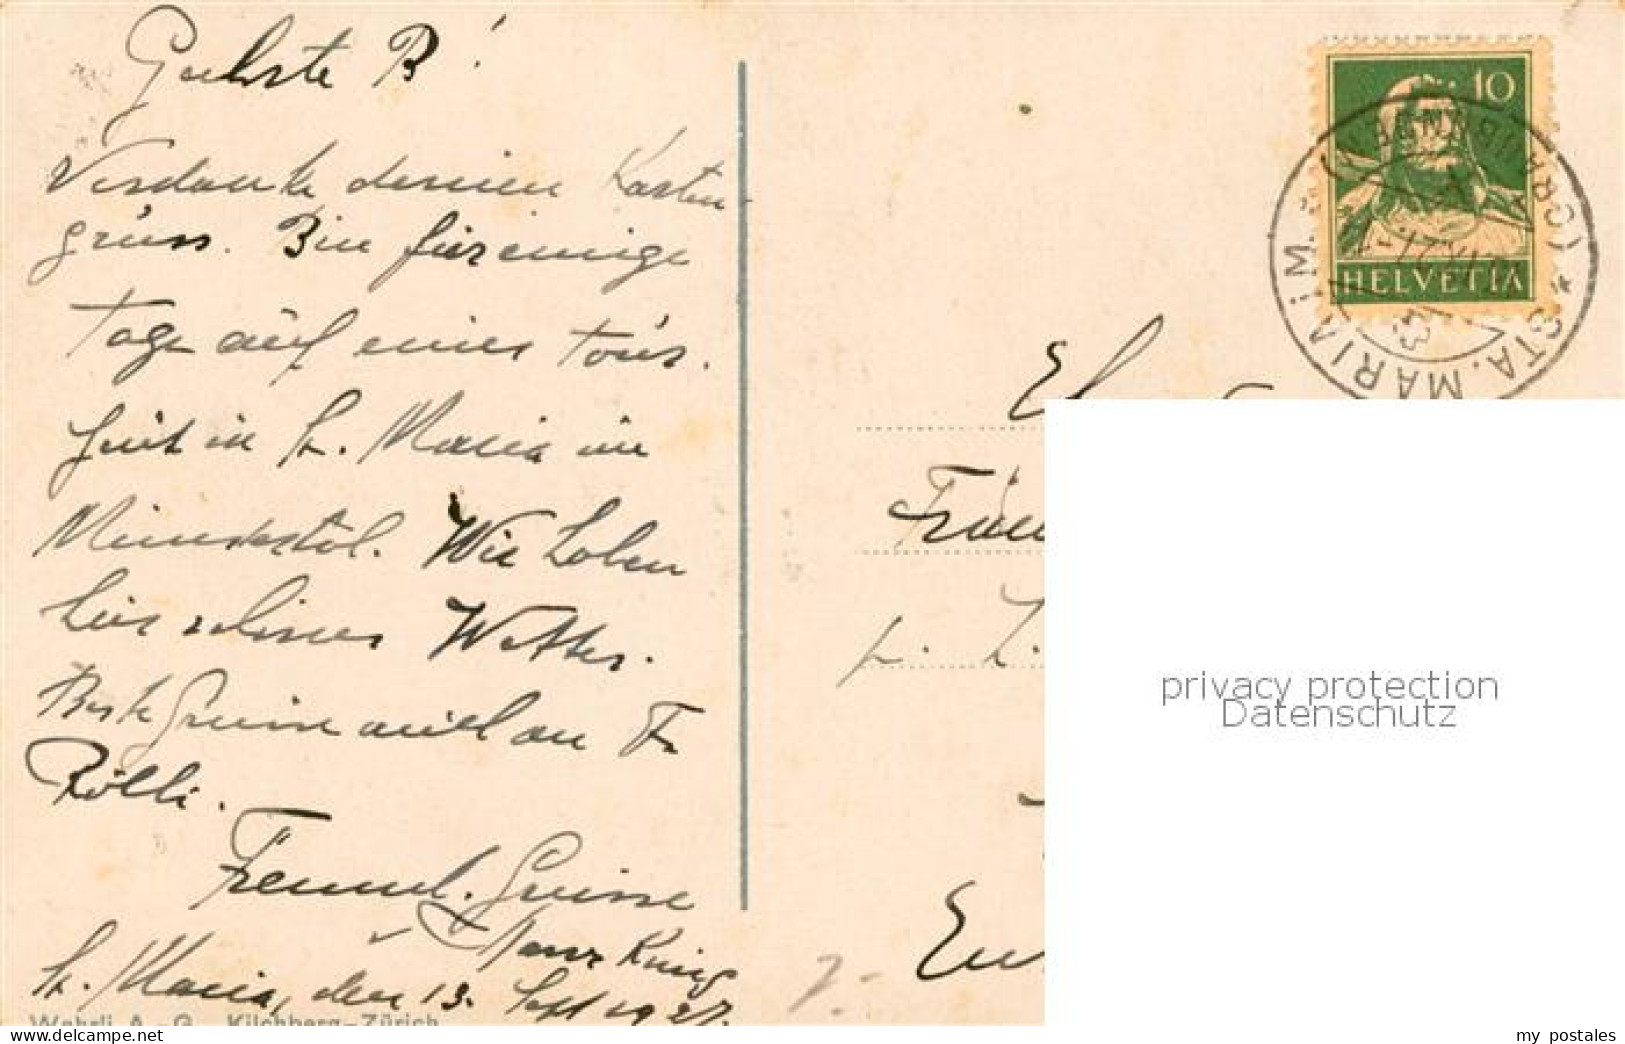 Geehrte B!
Verdanke deinen Karten-
gruss. Bin für einige
Tage auf einer Tour.
Heut in St. Maria im
Münstertal. Wir haben
hier schönes Wetter.
Beste Grüsse auch an Fr.
Rölli.
Freundl. Grüsse
Hans König
St. Maria, den 13. Sept 1927.
Wehrli A.-G. Kilchberg-Zürich
10
HELVETIA
STA. MARIA i. M. (GRAUBÜNDEN)
privacy protection
Datenschutz
www.delcampe.net
my_postales